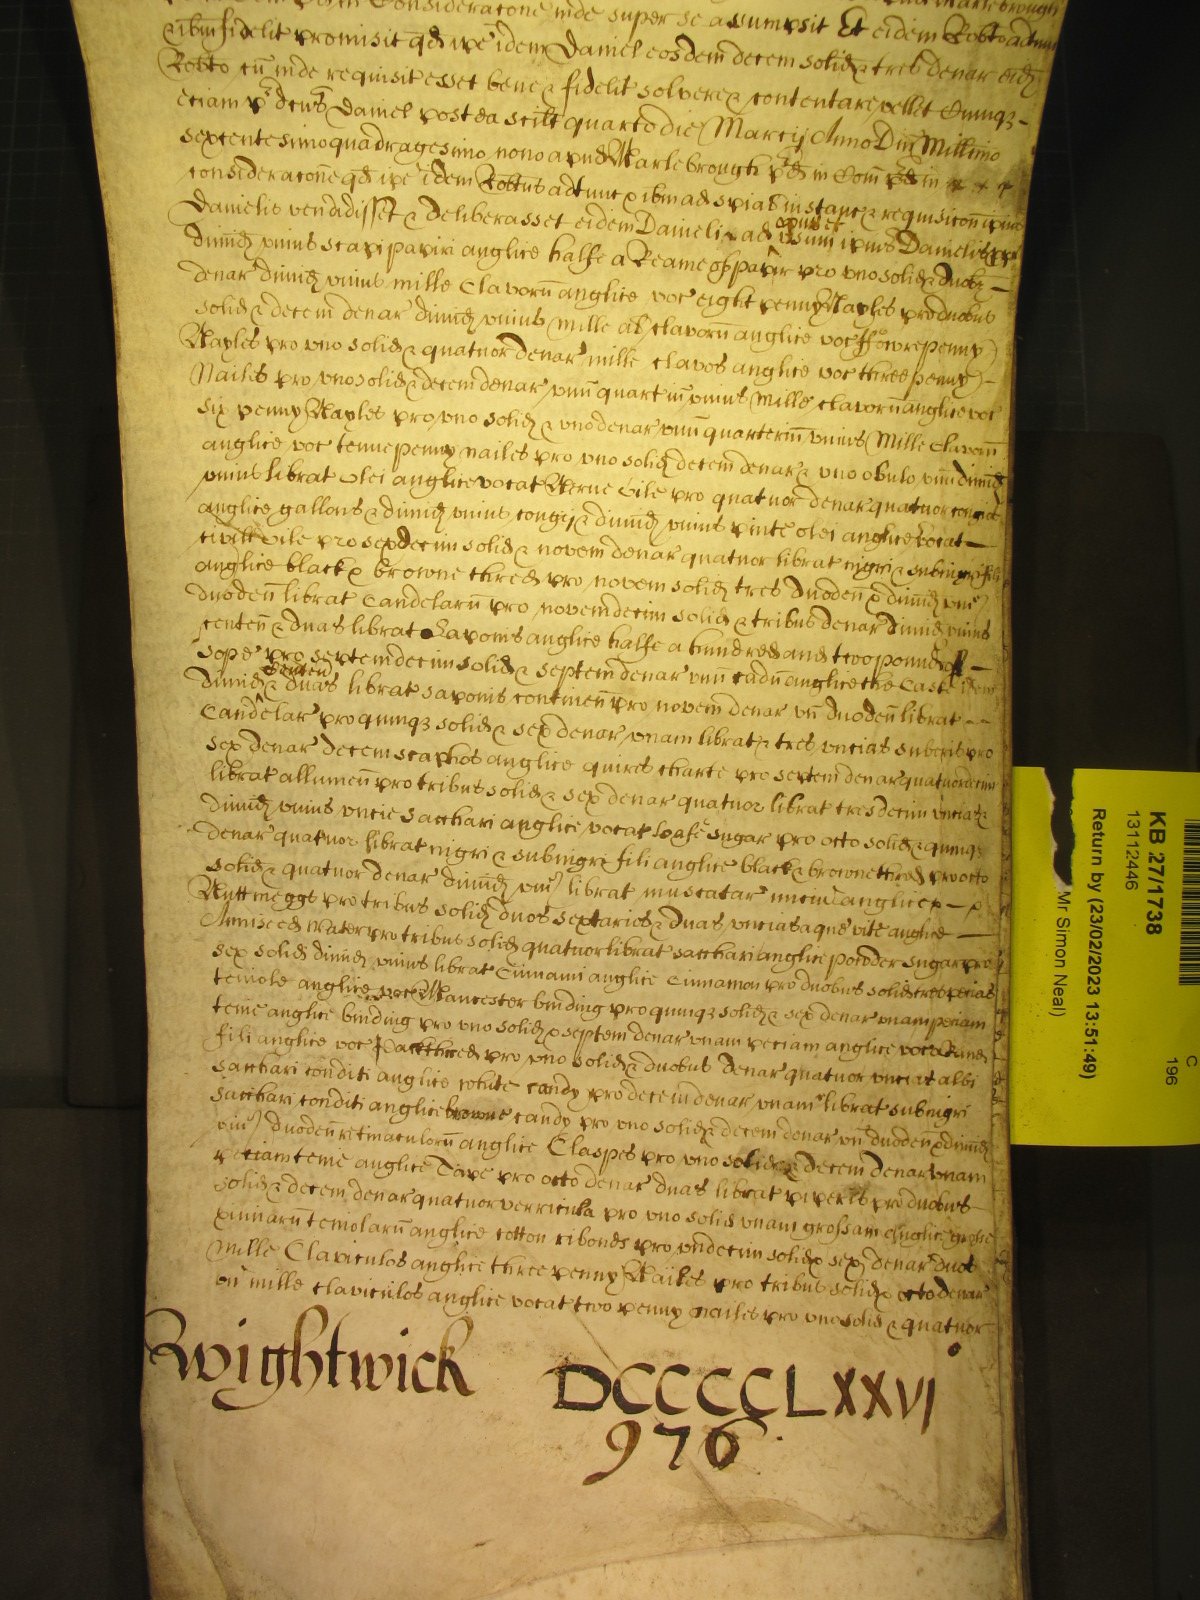 Consideracone inde super se assumpsit Et eidem Robto adtunc
& ibm fidelit promisit qd ipe idem Daniel eosdem decem solid & tres denar eid
Robto cu inde requisit esset bene & fidelit solvere & contentare vellet Cumqz
eciam pd Daniel postea scilt quarto die Marcij Anno Dni Millimo
sexcentesimo quadragesimo nono apud Marlebrough pd in Com pd in
consideracone qd ipe idem Robtus adtunc & ibm ad special instanc & requisicon ipius
Danielis vendidisset & deliberasset eidem Danieli & ad usum ipius Danielis
dimid unius scapi papiri anglice halfe a Reame of papir pro uno solid & duobz
denar dimid unius mille Clavoru anglice voc eight penny Nayles pro duobus
solid & decem denar dimid unius mille al clavoru anglice voc ffowrepenny
Nayles pro uno solid & quatuor denar mille clavos anglice voc three penny
Nailes pro uno solid & decem denar unu quarteriu unius Mille clavoru anglice voc
six penny Nayles pro uno solid & uno denar unu quarteriu unius Mille Clavoru
anglice voc tenne penny nailes pro uno solid decem denar & uno obulo unu dimid
unius librat Olei anglice vocat Oile pro quatuor denar quatuor congios
anglice gallons & dimid unius congij & dimid unius pinte olei anglice vocat
Civill Oile pro sexdecim solid & novem denar quatuor librat nigri & subnigri fili
anglice black & browne thred pro novem solid tres duoden & dimid uni9
duoden librat Candelaru pro novemdecim solid & tribus denar dimid unius
centen & duas librat Saponis anglice halfe a hundred and two pound of
sope pro septemdecim solid & septem denar unu cadu anglice the Caske idem
dimid centen & duas librat saponis continen pro novem denar un duoden librat
Candelar pro quinqz solid & sex denar unam librat & tres uncias suberis pro
sex denar decem scaphos anglice quires charte pro septem denar quatuordecim
librat allumen pro tribus solid & sex denar quatuor librat tresdecim uncias &
dimid unius uncie Sacchari anglice vocat loafe sugar pro octo solid & quinqz
denar quatuor librat nigri & subnigri fili anglice black & browne thred pro octo
solid & quatuor denar dimid uni9 librat muscatar nuciu anglice
Nuttmeggs pro tribus solid duos sextarios & duas uncias aque vite anglice
Anniseed Water pro tribus solid quatuor librat sacchari anglice powder sugar pro
sex solid dimid unius librat Cinnami anglice Cinnamon pro duobus solid tres pecias
teniole anglice voc Mancester binding pro quinqz solid & sex denar unam peciam
tenie anglice binding pro uno solid & septem denar unam peciam anglice voc
fili anglice voc Packthred pro uno solid & duobus denar quatuor unciat albi
Sacchari conditi anglice white candy pro decem denar unam librat subnigri
Sacchari conditi anglice browne candy pro uno solid & decem denar un duoden & dimid
uni9 duoden retinaculoru anglice Claspes pro uno solid & decem denar unam
peciam tenie anglice Tape pro octo denar duas librat piperis pro duobus
solid & decem denar quatuor verricula pro uno solid unam grossam anglice grosse
xiniaru teniolaru anglice cotton ribonds pro undecim solid & sex denar duos
mille Claviculos anglice three penny Nailes pro tribus solid & octo denar
un mille claviculos anglice vocat two penny nailes pro uno solid & quatuor
Wightwick DCCCCLXXVI
976
KB 27/1738
13112446
Return by (23/02/2023 13:51:49)
Mr Simon Neal)
C
196